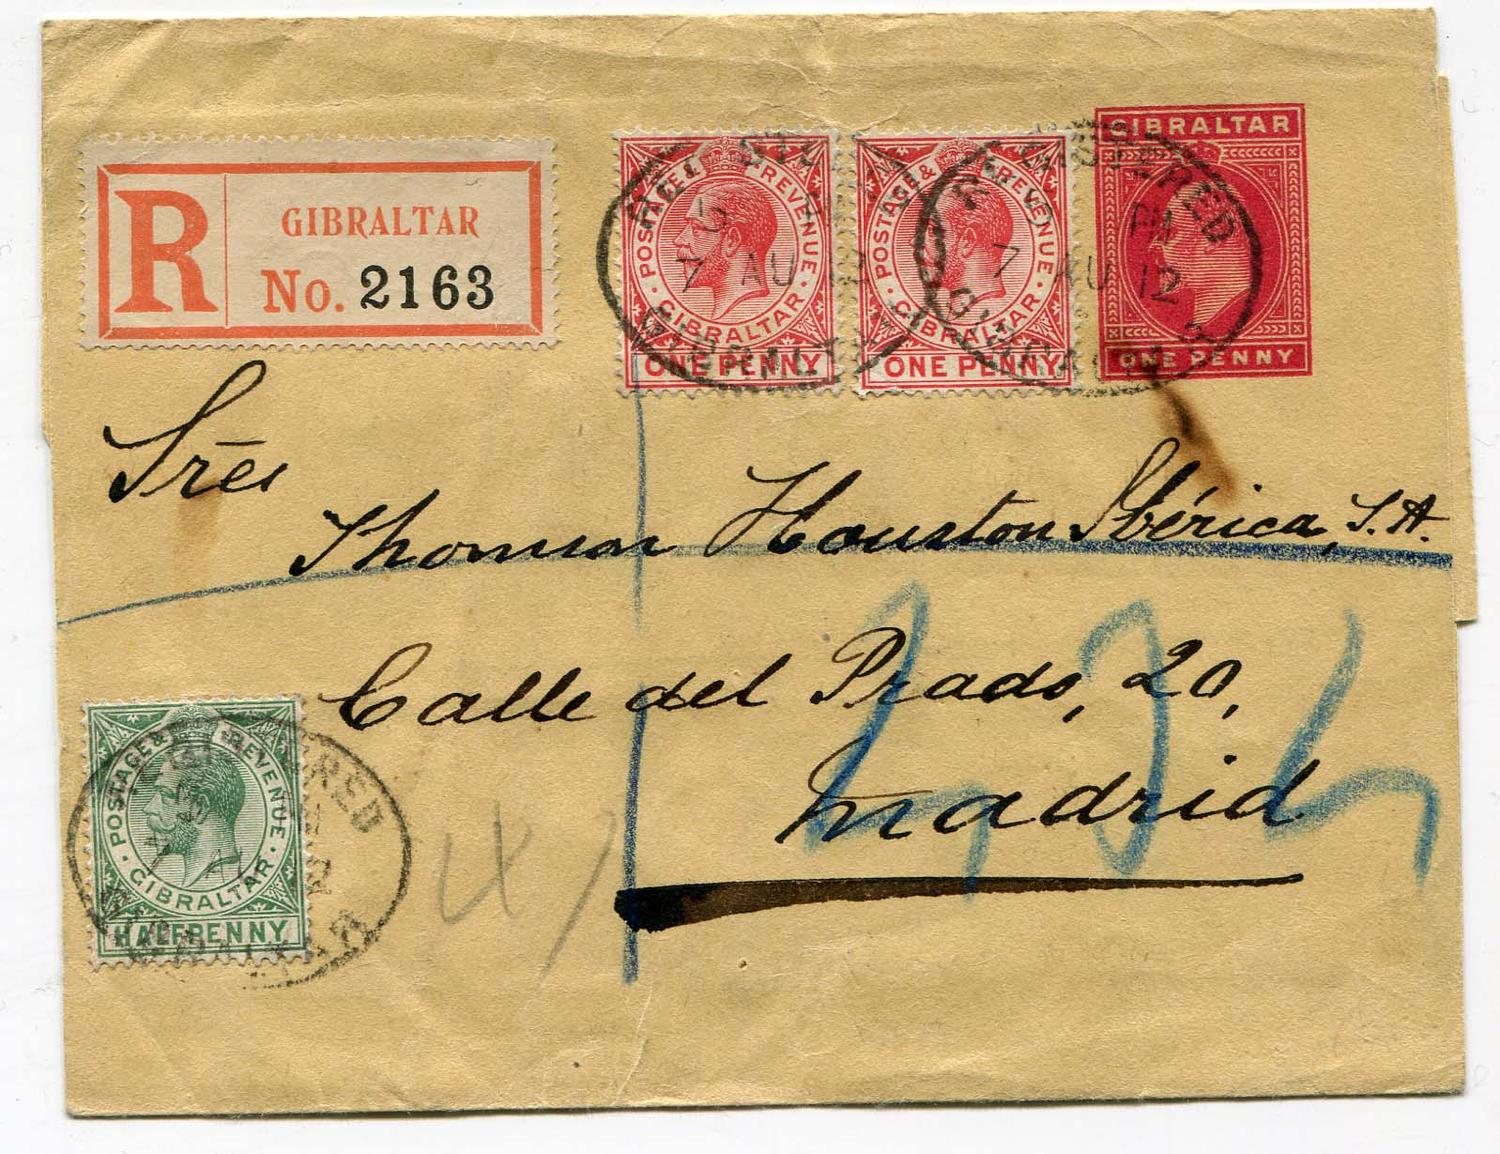 R
GIBRALTAR
No. 2163
POSTAGE & REVENUE
GIBRALTAR
ONE PENNY
POSTAGE & REVENUE
GIBRALTAR
ONE PENNY
GIBRALTAR
ONE PENNY
7 AU 12
GIBRALTAR
REGISTERED
PM
7 AU 12
GIBRALTAR
Srēs
Thomson Houston Ibérica, S.A.
Calle del Prado, 20,
Madrid
POSTAGE & REVENUE
GIBRALTAR
HALFPENNY